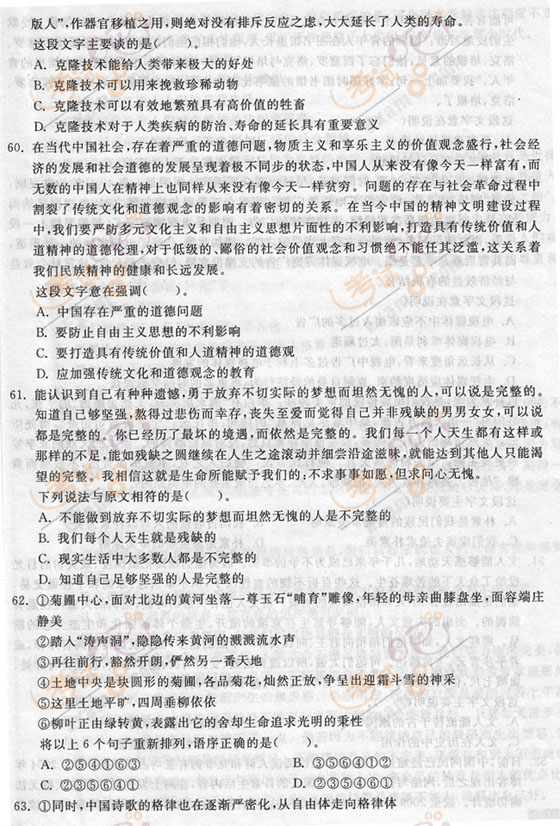 版人”,作器官移植之用,则绝对没有排斥反应之虑,大大延长了人类的寿命。
这段文字主要谈的是(　　)。
A. 克隆技术能给人类带来极大的好处
B. 克隆技术可以用来挽救珍稀动物
C. 克隆技术可以有效地繁殖具有高价值的牲畜
D. 克隆技术对于人类疾病的防治、寿命的延长具有重要意义
60. 在当代中国社会,存在着严重的道德问题,物质主义和享乐主义的价值观念盛行,社会经
济的发展和社会道德的发展呈现着极不同步的状态,中国人从来没有像今天一样富有,而
无数的中国人在精神上也同样从来没有像今天一样贫穷。问题的存在与社会革命过程中
割裂了传统文化和道德观念的影响有着密切的关系。在当今中国的精神文明建设过程
中,我们要严防多元文化主义和自由主义思想片面性的不利影响,打造具有传统价值和人
道精神的道德伦理,对于低级的、鄙俗的社会价值观念和习惯绝不能任其泛滥,这关系着
我们民族精神的健康和长远发展。
这段文字意在强调(　　)。
A. 中国存在严重的道德问题
B. 要防止自由主义思想的不利影响
C. 要打造具有传统价值和人道精神的道德观
D. 应加强传统文化和道德观念的教育
61. 能认识到自己有种种遗憾,勇于放弃不切实际的梦想而坦然无愧的人,可以说是完整的。
知道自己够坚强,熬得过悲伤而幸存,丧失至爱而觉得自己并非残缺的男男女女,可以说
都是完整的。你已经历了最坏的境遇,而依然是完整的。我们每一个人天生都有这样或
那样的不足,能如残缺之圆继续在人生之途滚动并细尝沿途滋味,就能达到其他人只能渴
望的完整。我相信这就是生命所能赋予我们的:不求事事如愿,但求问心无愧。
下列说法与原文相符的是(　　)。
A. 不能做到放弃不切实际的梦想而坦然无愧的人是不完整的
B. 我们每个人天生就是残缺的
C. 现实生活中大多数人都是不完整的
D. 知道自己足够坚强的人是完整的
62. ①菊圃中心,面对北边的黄河坐落一尊玉石“哺育”雕像,年轻的母亲曲膝盘坐,面容端庄
静美
②踏入“涛声洞”,隐隐传来黄河的溅溅流水声
③再往前行,豁然开朗,俨然另一番天地
④土地中央是块圆形的菊圃,各品菊花,灿然正放,争呈出迎霜斗雪的神采
⑤这里土地平旷,四周垂柳依依
⑥柳叶正由绿转黄,表露出它的舍却生命追求光明的秉性
将以上 6 个句子重新排列,语序正确的是(　　)。
A. ②⑤④①⑥③
B. ②③⑤④①⑥
C. ②③⑤⑥④①
D. ②③⑤④⑥①
63. ①同时,中国诗歌的格律也在逐渐严密化,从自由体走向格律体